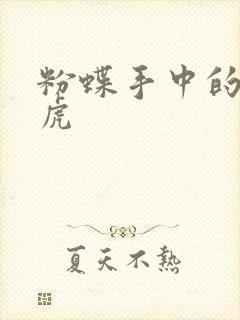 粉蝶手中的
虎
夏天不熱